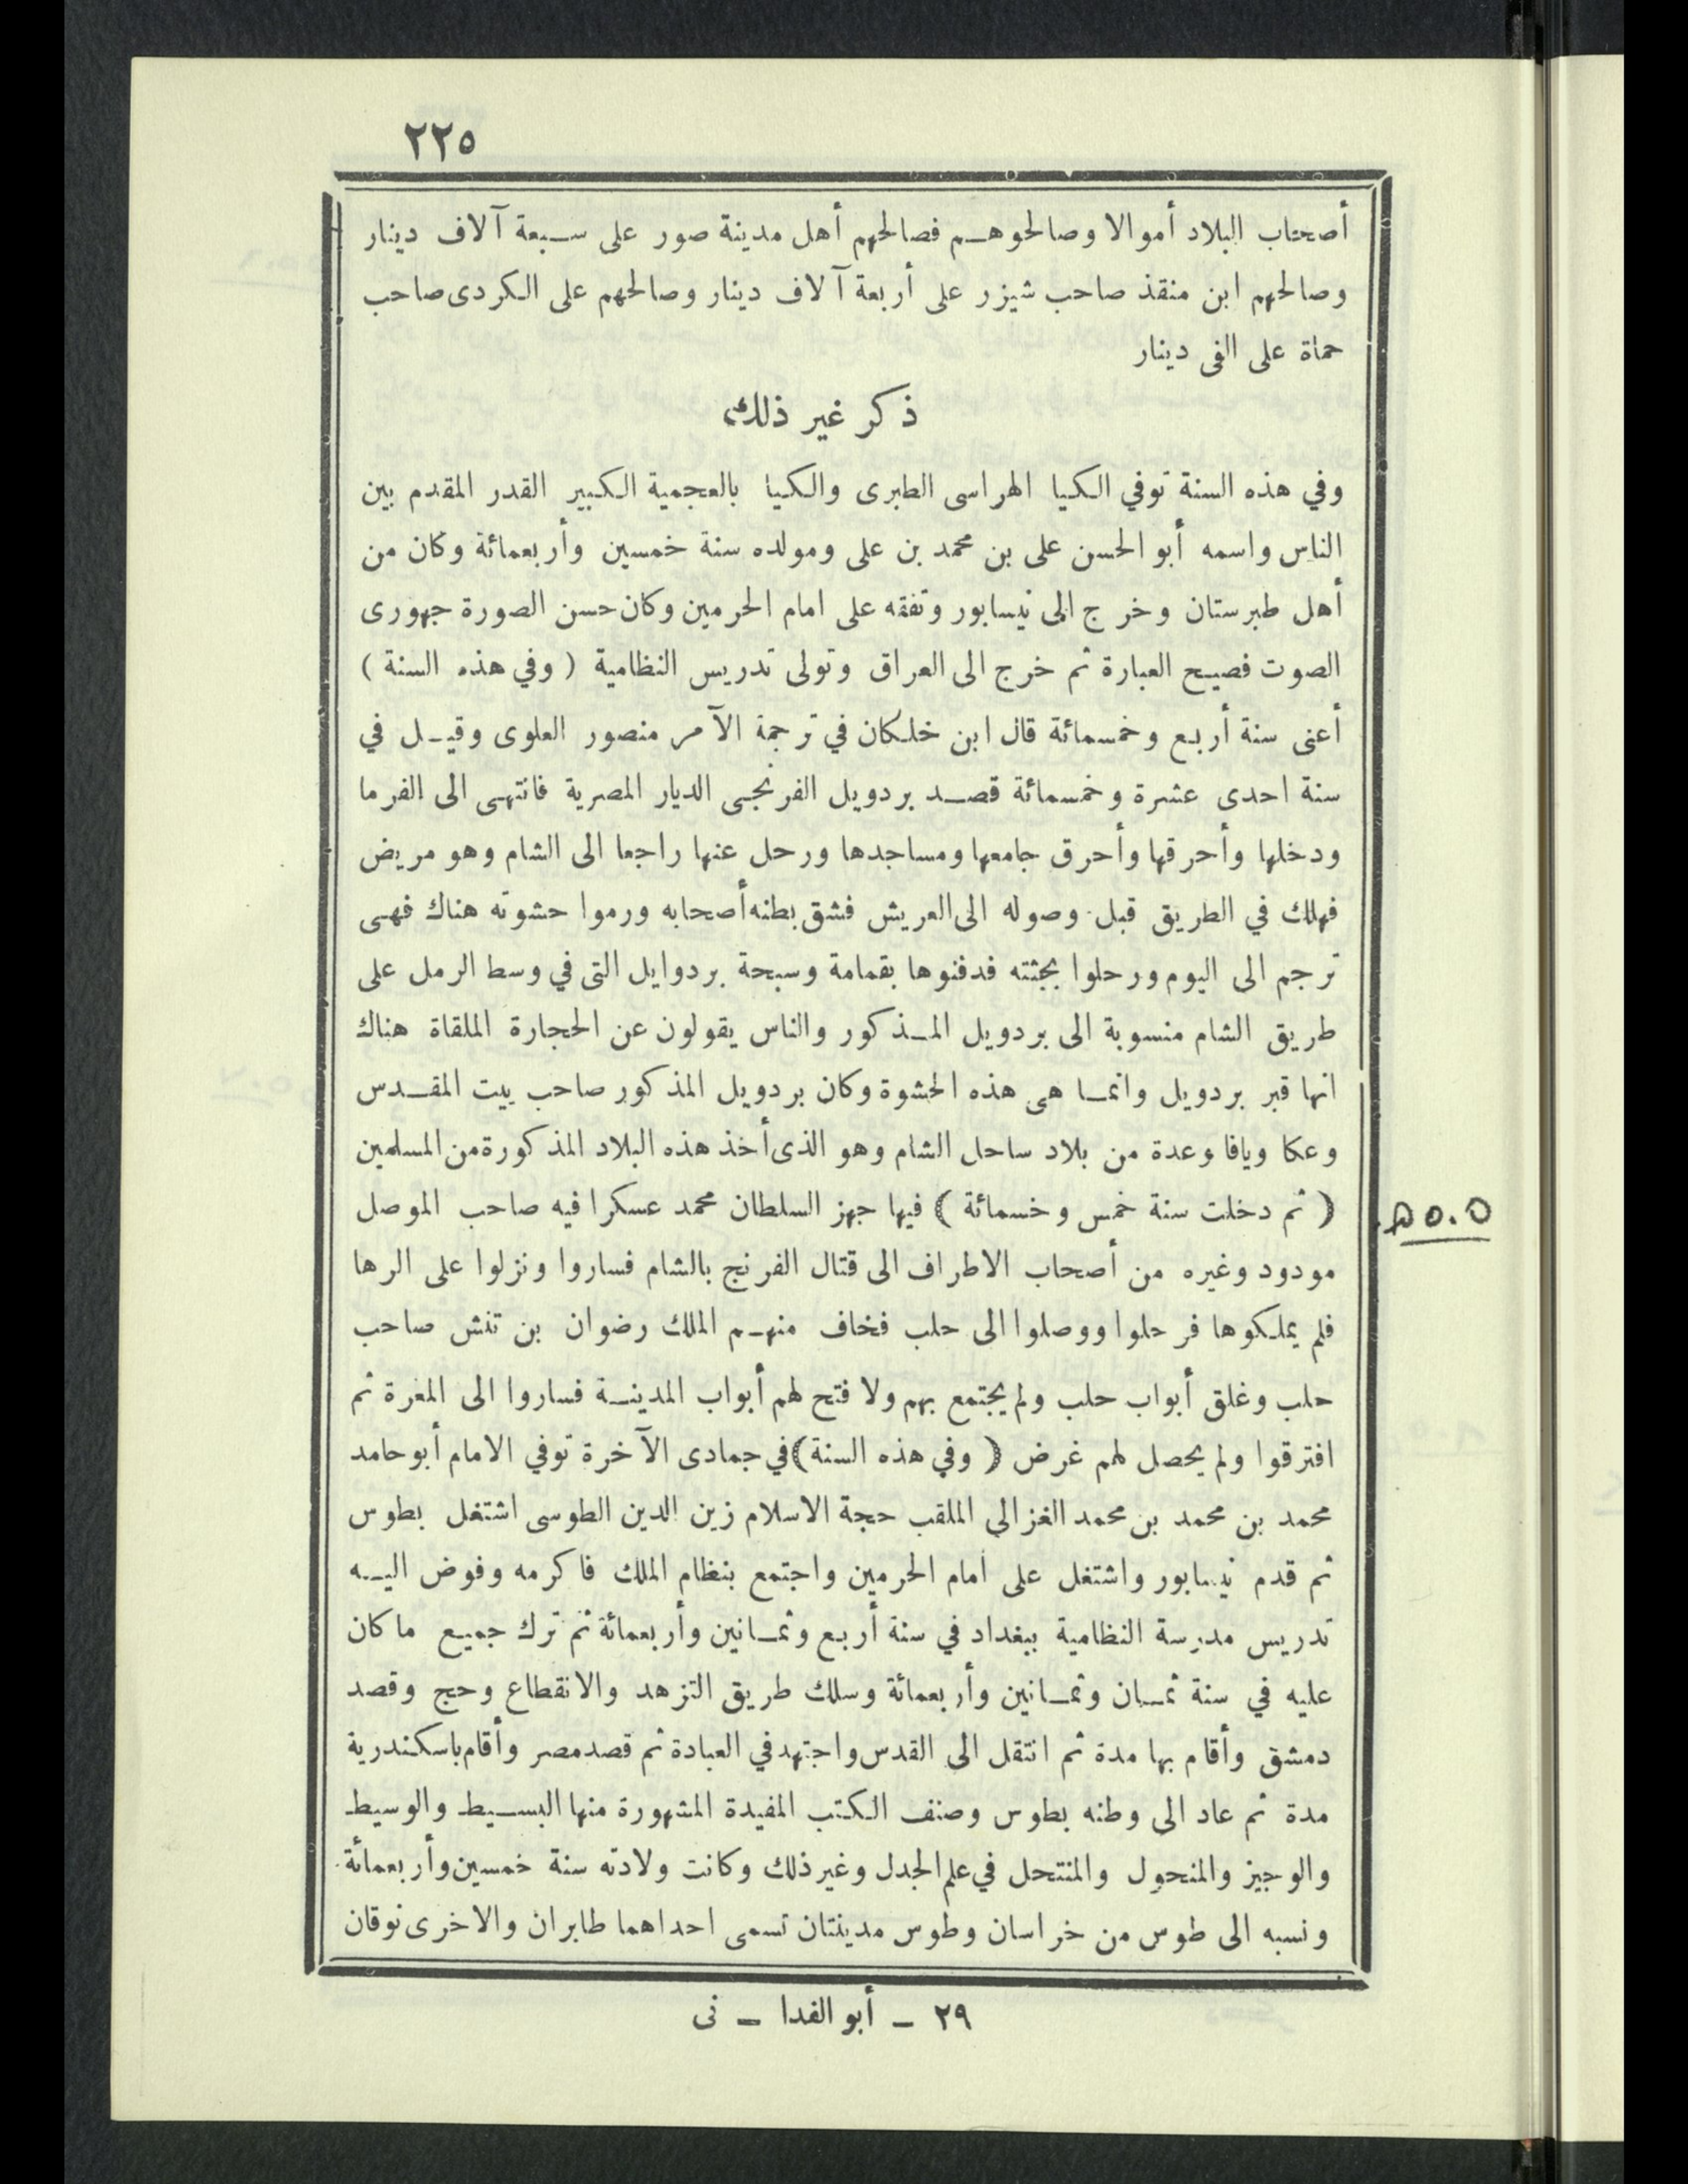 ٢٢٥
أصحاب البلاد أموالا وصالحوهم فصالحهم أهل مدينة صور على سبعة آلاف دينار
وصالحهم ابن منقذ صاحب شيزر على أربعة آلاف دينار وصالحهم على الكردى صاحب
حماة على الفى دينار
ذكر غير ذلك
وفي هذه السنة توفي الكيا الهراسى الطبرى والكيا بالعجمية الكبير القدر المقدم بين
الناس واسمه أبو الحسن على بن محمد بن على ومولده سنة خمسين وأربعمائة وكان من
أهل طبرستان وخرج الى نيسابور وتفقه على امام الحرمين وكان حسن الصورة جهورى
الصوت فصيح العبارة ثم خرج الى العراق وتولى تدريس النظامية ( وفي هذه السنة )
أعنى سنة أربع وخمسمائة قال ابن خلكان في ترجمة الآمر منصور العلوى وقيل في
سنة احدى عشرة وخمسمائة قصد بردويل الفرنجى الديار المصرية فانتهى الى الفرما
ودخلها وأحرقها وأحرق جامعها ومساجدها ورحل عنها راجعا الى الشام وهو مريض
فهلك في الطريق قبل وصوله الى العريش فشق بطنه أصحابه ورموا حشوته هناك فهى
ترجم الى اليوم ورحلوا بجثته فدفنوها بقمامة وسبحة بردوايل التى في وسط الرمل على
طريق الشام منسوبة الى بردويل المذكور والناس يقولون عن الحجارة الملقاة هناك
انها قبر بردويل وانما هى هذه الحشوة وكان بردويل المذكور صاحب بيت المقدس
وعكا ويافا وعدة من بلاد ساحل الشام وهو الذى أخذ هذه البلاد المذكورة من المسلمين
( ثم دخلت سنة خمس وخسمائة ) فيها جهز السلطان محمد عسكرا فيه صاحب الموصل
٥٠٥ه
مودود وغيره من أصحاب الاطراف الى قتال الفرنج بالشام فساروا ونزلوا على الرها
فلم يملكوها فرحلوا ووصلوا الى حلب فخاف منهم الملك رضوان بن تتش صاحب
حلب وغلق أبواب حلب ولم يجتمع بهم ولا فتح لهم أبواب المدينة فساروا الى المعرة ثم
افترقوا ولم يحصل لهم غرض ( وفي هذه السنة ) في جمادى الآخرة توفي الامام أبو حامد
محمد بن محمد بن محمد الغزالي الملقب حجة الاسلام زين الدين الطوسى اشتغل بطوس
ثم قدم نيسابور واشتغل على امام الحرمين واجتمع بنظام الملك فاكرمه وفوض اليه
تدريس مدرسة النظامية ببغداد في سنة أربع وثمانين وأربعمائة ثم ترك جميع ما كان
عليه في سنة ثمان وثمانين وأربعمائة وسلك طريق التزهد والانقطاع وحج وقصد
دمشق وأقام بها مدة ثم انتقل الى القدس واجتهد في العبادة ثم قصد مصر وأقام باسكندرية
مدة ثم عاد الى وطنه بطوس وصنف الكتب المفيدة المشهورة منها البسيط والوسيط
والوجيز والمنحول والمنتحل في علم الجدل وغير ذلك وكانت ولادته سنة خمسين وأربعمائة
ونسبه الى طوس من خراسان وطوس مدينتان تسمى احداهما طابران والاخرى نوقان
٢٩ – أبو الفدا – نى